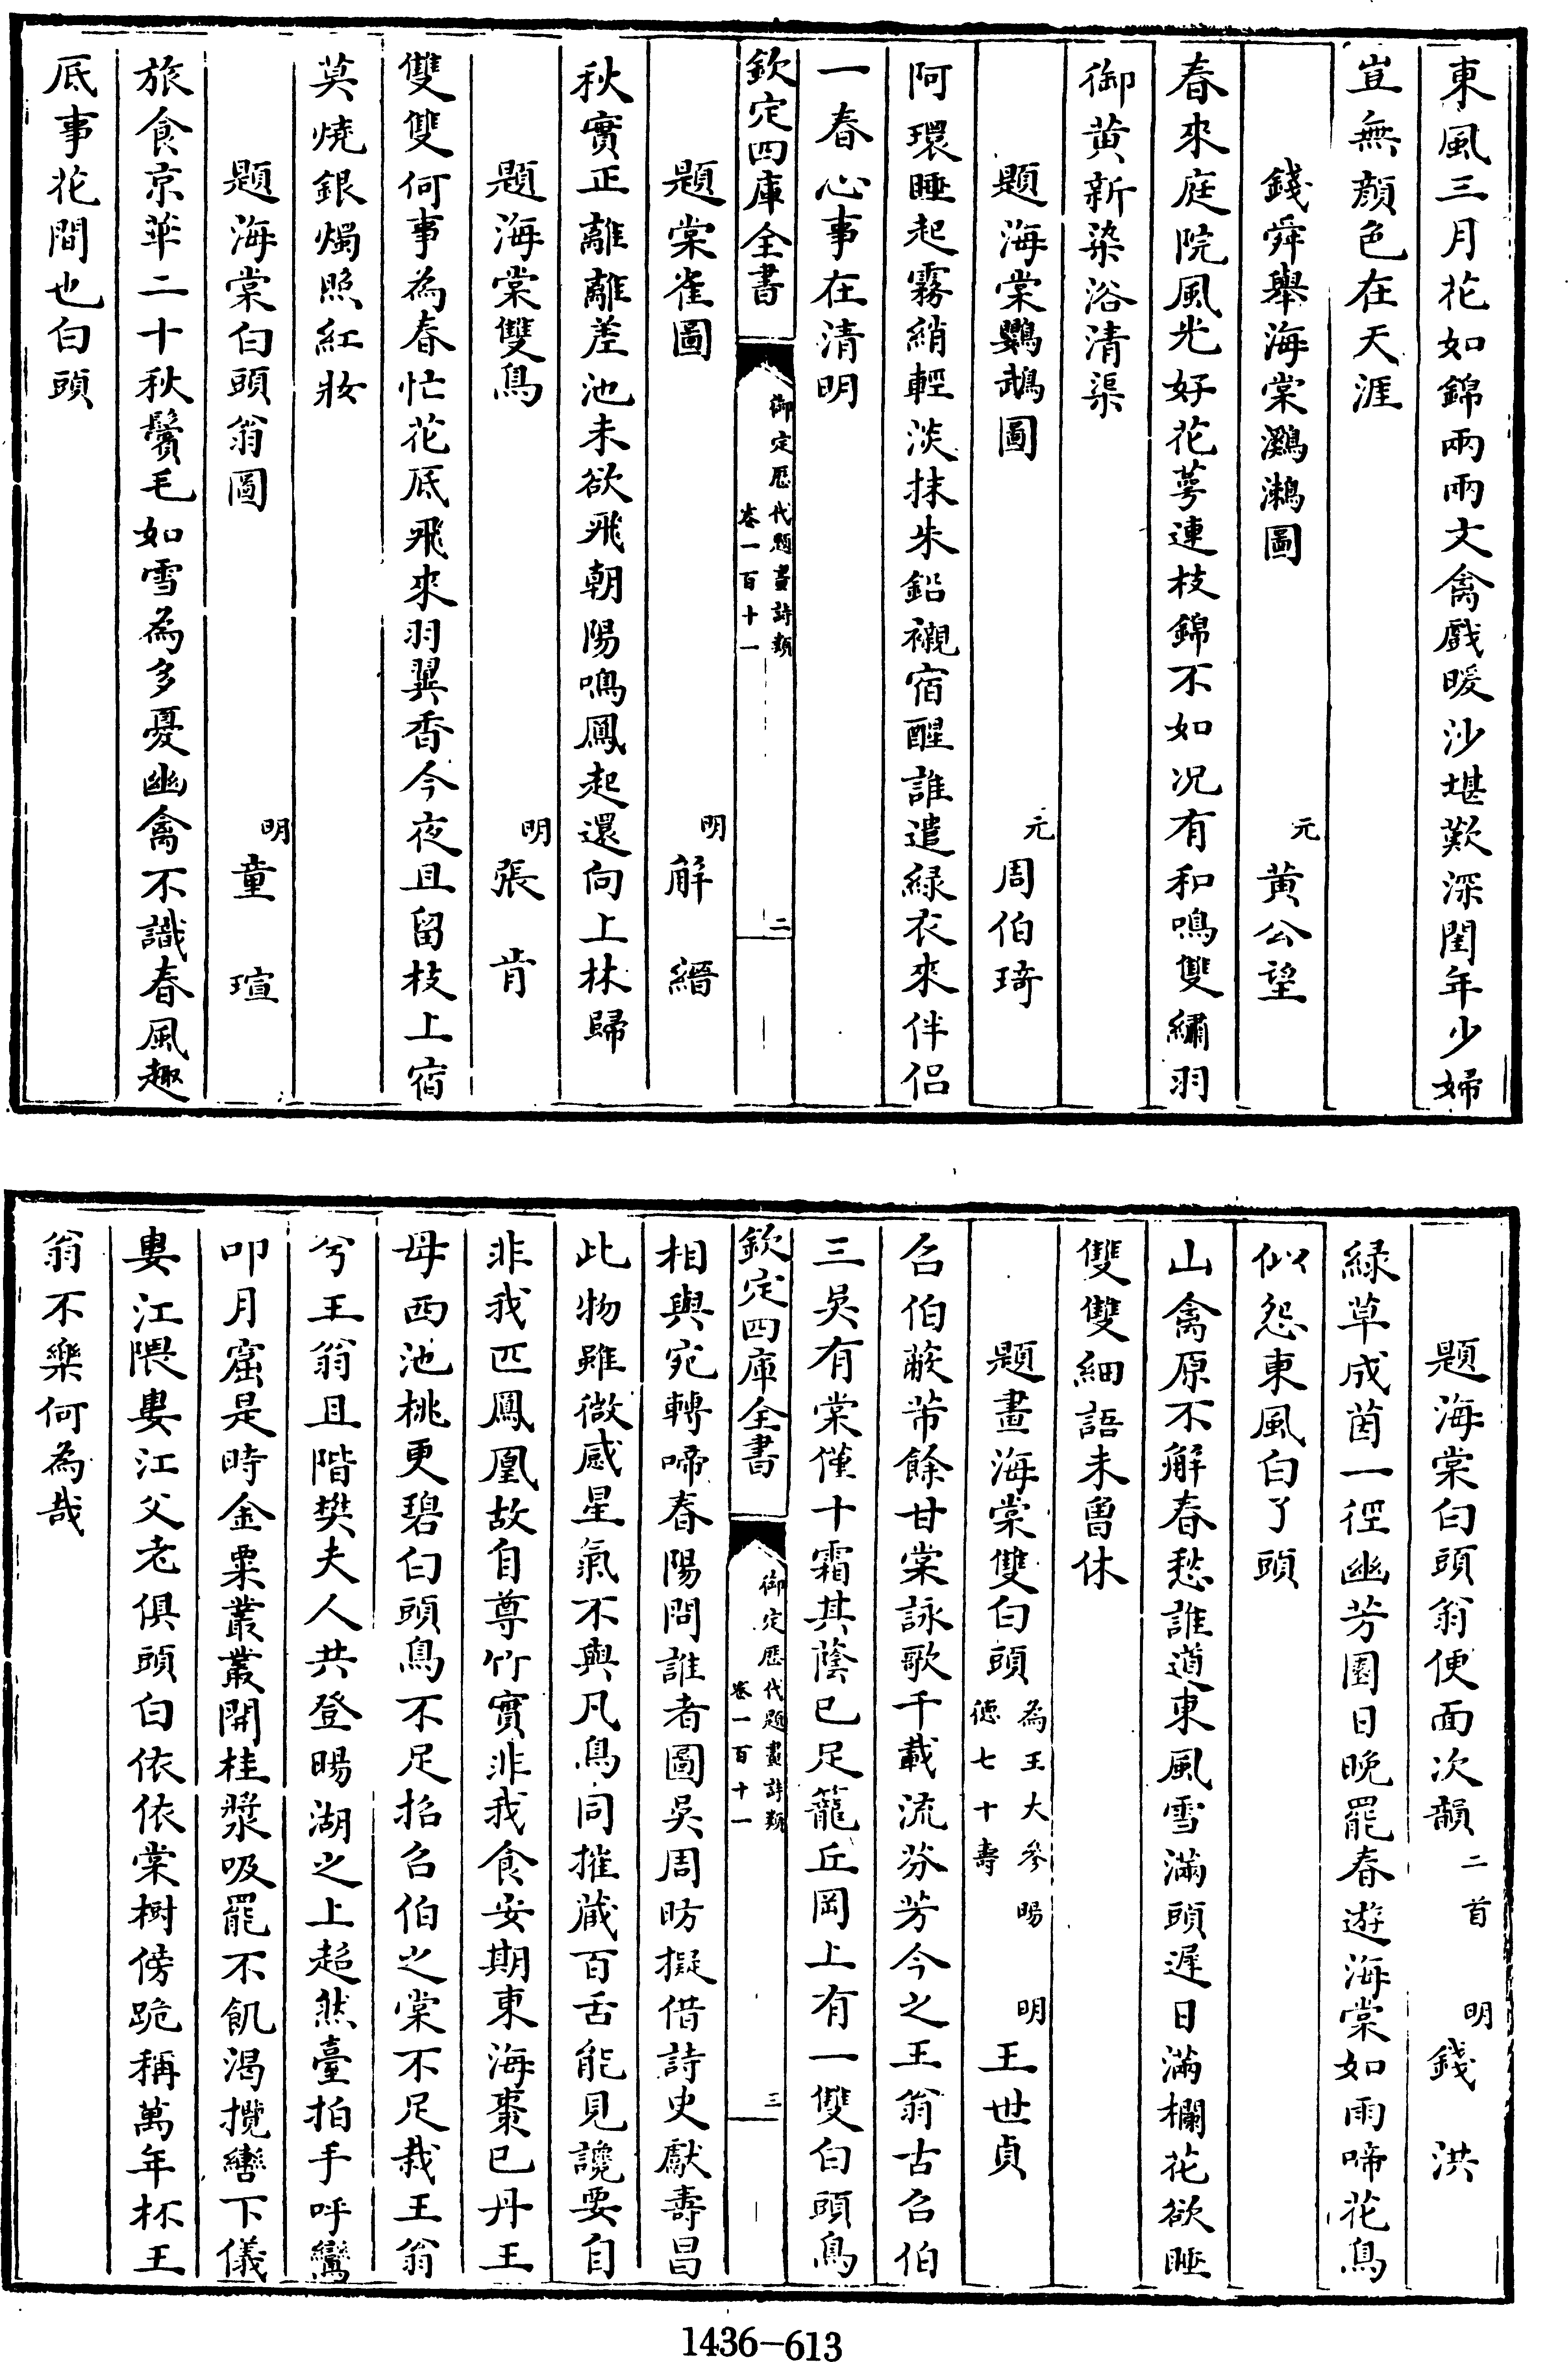 東風三月花如錦兩兩文禽戲暖沙堪歎深閨年少婦
豈無顔色在天涯
錢舜舉海棠鸂鶒圖 元 黄公望
春來庭院風光好花萼連枝錦不如况有和鳴雙繡羽
御黄新染浴清渠
題海棠鸚鵡圖 元 周伯琦
阿環睡起霧綃輕淡抹朱鉛襯宿酲誰遣緑衣來伴侣
一春心事在清明
欽定四庫全書 御定歷代題畫詩類 卷一百十一 二
題棠雀圖 明 解縉
秋實正離離差池未欲飛朝陽鳴鳳起還向上林歸
題海棠雙鳥 明 張肯
雙雙何事為春忙花底飛來羽翼香今夜且留枝上宿
莫燒銀燭照紅妝
題海棠白頭翁圖 明 童瑄
旅食京華二十秋鬢毛如雪為多憂幽禽不識春風趣
底事花間也白頭
題海棠白頭翁便面次韻 二首 明 錢洪
緑草成茵一徑幽芳園日晚罷春遊海棠如雨啼花鳥
似怨東風白了頭
山禽原不解春愁誰道東風雪滿頭遲日滿欄花欲睡
雙雙細語未曾休
題畫海棠雙白頭 為王大參暘德七十壽 明 王世貞
召伯蔽芾餘甘棠詠歌千載流芬芳今之王翁古召伯
三吳有棠僅十霜其蔭已足籠丘岡上有一雙白頭鳥
欽定四庫全書 御定歷代題畫詩類 卷一百十一 三
相與宛轉啼春陽問誰者圖吳周昉擬借詩史獻壽昌
此物雖微感星氣不與凡鳥同摧藏百舌能見讒要自
非我匹鳳凰故自尊竹實非我食安期東海棗已丹王
母西池桃更碧白頭鳥不足招召伯之棠不足栽王翁
兮王翁且階樊夫人共登暘湖之上超然臺拍手呼鸞
叩月窟是時金粟叢叢開桂漿吸罷不飢渴攬轡下儀
婁江隈婁江父老俱頭白依依棠樹傍跪稱萬年杯王
翁不樂何為哉
1436-613